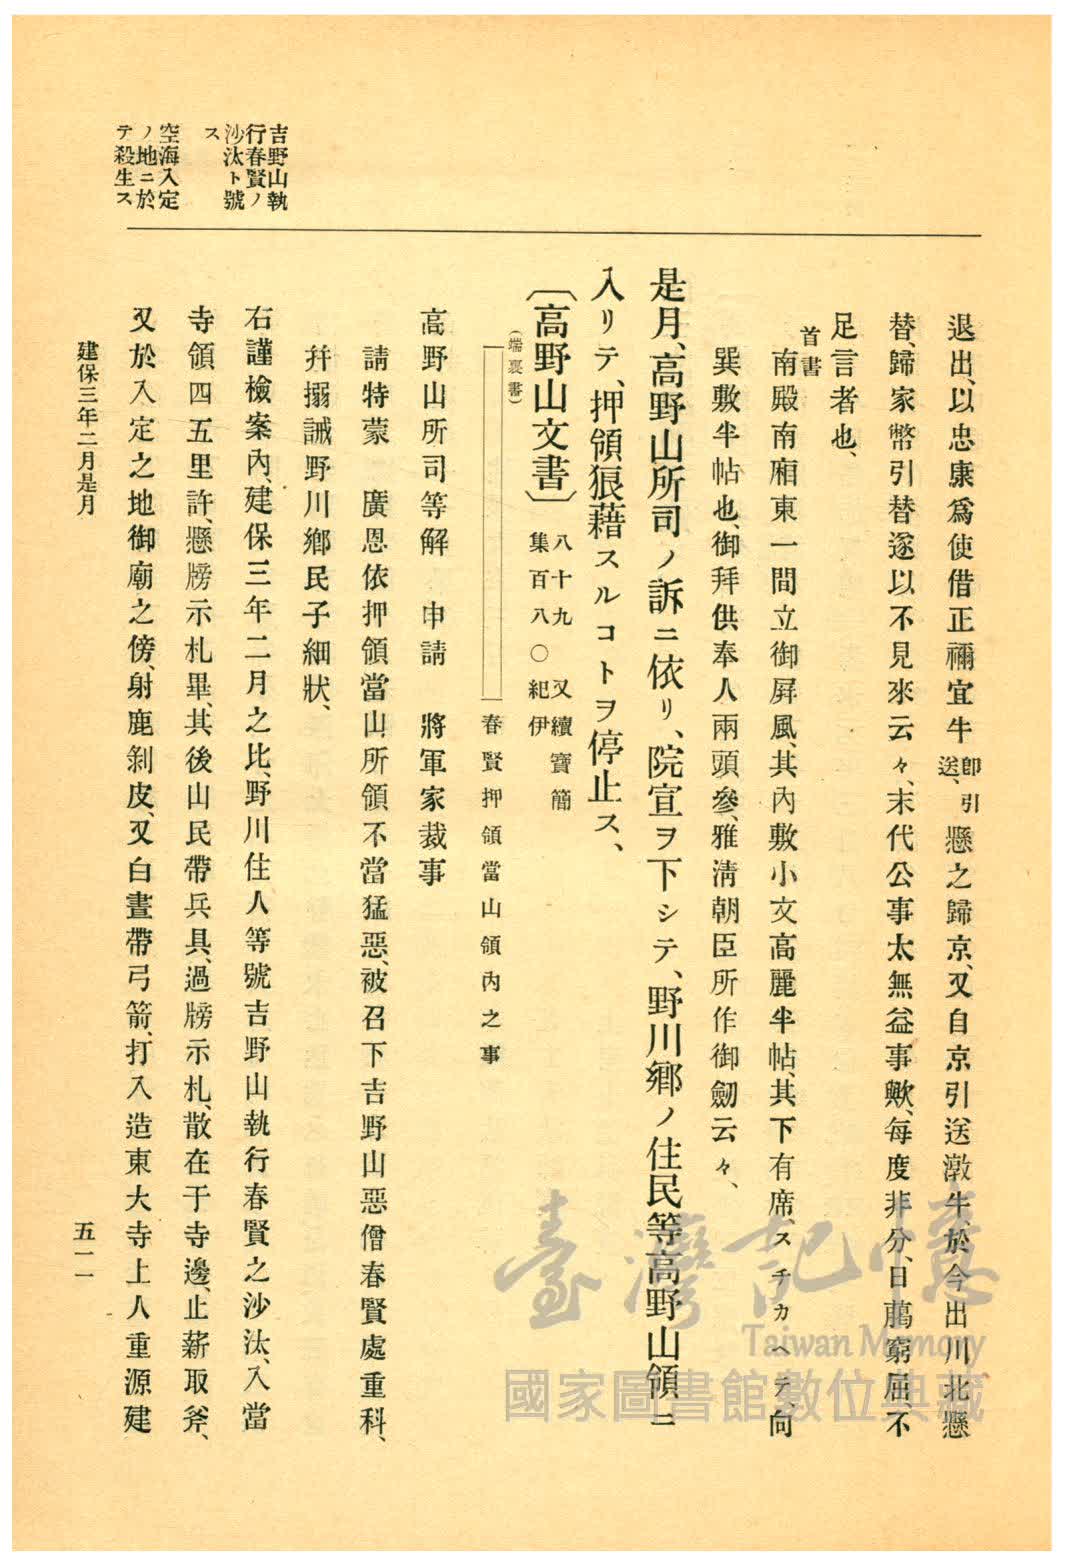 吉野山執
行春賢ノ
沙汰ト號
ス
空海入定
ノ地ニ於
テ殺生ス
退出、以忠康爲使借正禰宜牛卽引送、懸之歸京、又自京引送激牛、於今出川北懸
替、歸家幣引替遂以不見來云々、末代公事太無益事歟、每度非分、日﨟窮屈、不
足言者也、
首書
南殿南廂東一間立御屛風、其內敷小文高麗半帖、其下有席、スチカヘテ、向
巽敷半帖也、御拜供奉人兩頭參、雅淸朝臣所作御劒云々、
是月、高野山所司ノ訴ニ依リ、院宣ヲ下シテ、野川鄕ノ住民等高野山領ニ
入リテ、押領狼藉スルコトヲ停止ス、
〔高野山文書〕八十九 又續寶簡集百八○紀伊
(端裏書)
春賢押領當山領內之事
高野山所司等解 申請 將軍家裁事
請特蒙 廣恩依押領當山所領不當猛惡、被召下吉野山惡僧春賢處重科、
幷搦誡野川鄕民子細狀、
右謹檢案內、建保三年二月之比、野川住人等號吉野山執行春賢之沙汰、入當
寺領四五里許、懸牓示札畢、其後山民帶兵具、過牓示札、散在于寺邊、止薪取斧、
又於入定之地御廟之傍、射鹿剝皮、又白晝帶弓箭、打入造東大寺上人重源建
建保三年二月是月
五一一
臺灣記憶
Taiwan Memory
國家圖書館數位典藏